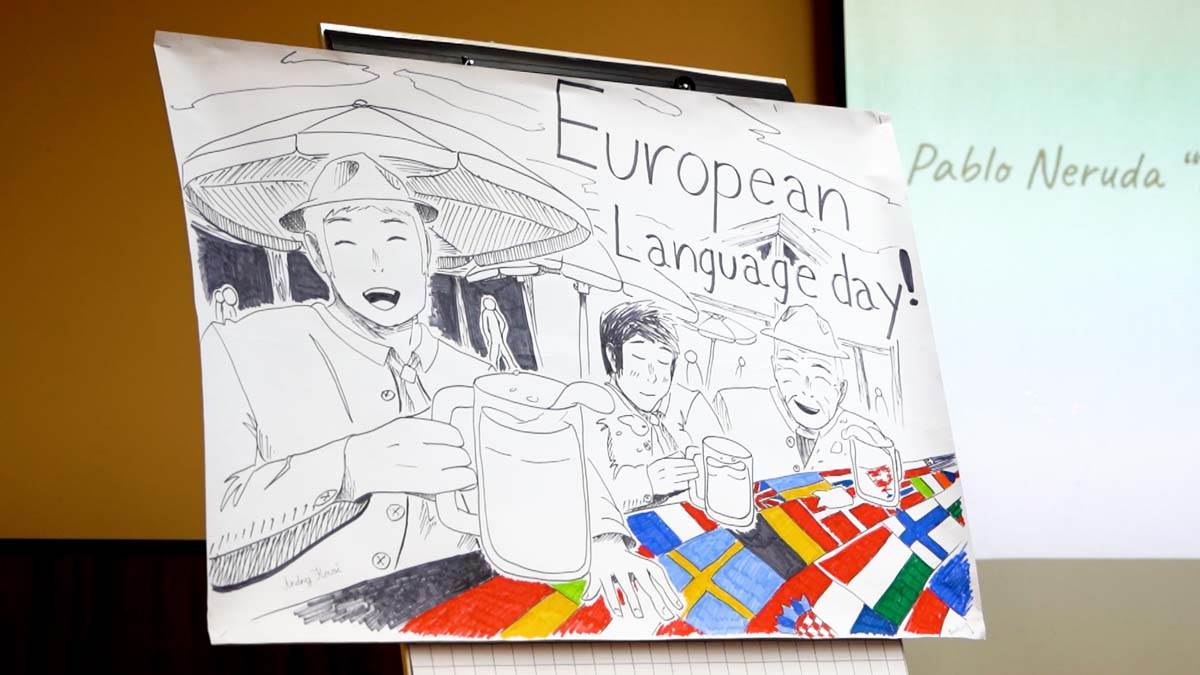 European
Language day!
Pablo Neruda “